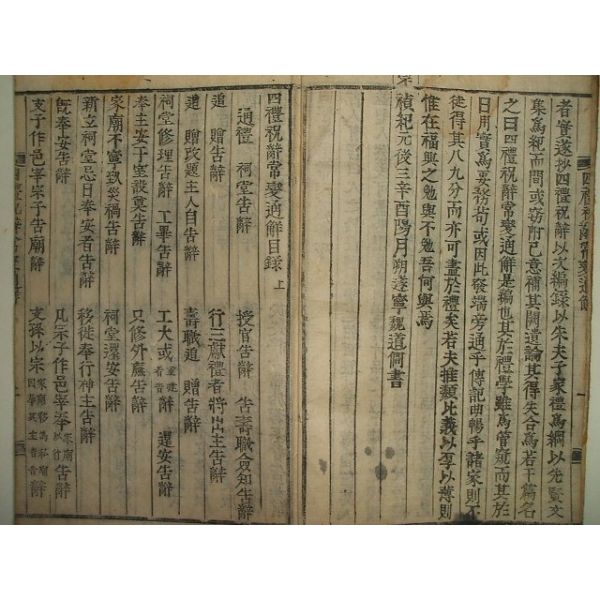 者實遂抄四禮祝辭以次編錄以朱夫子家禮爲綱以先賢文
集爲紀而間或竊附己意補其闕遺論其得失合爲若干篇名
之曰四禮祝辭常變通解是編也其於禮學雖爲管窺而其於
日用實爲要務苟或因此發端旁通乎傳記明暢乎諸家則不
徒得其八九分而亦可盡於禮矣若夫推類比義以厚以薄則
惟在福興之勉與不勉吾何與焉
禎紀元後三辛酉陽月朔遂寧魏道僴書
四禮祝辭常變通解
四禮祝辭常變通解目錄 上
通禮 祠堂告辭 授官告辭 告壽職僉知告辭
追贈告辭 行三獻禮者將出主告辭
追贈改題主人自告辭 壽職追贈告辭
祠堂修理告辭 工畢告辭 工大或重建者 還安告辭
奉主安于室設奠告辭 只修外廳告辭
家廟不實致災禍告辭 祠堂還安告辭
新立祠堂忌日奉安者告辭 移徙奉行神主告辭
旣奉安告辭 凡宗子作邑宰奉家廟以行告辭
支子作邑宰宗子告廟辭 支孫以宗